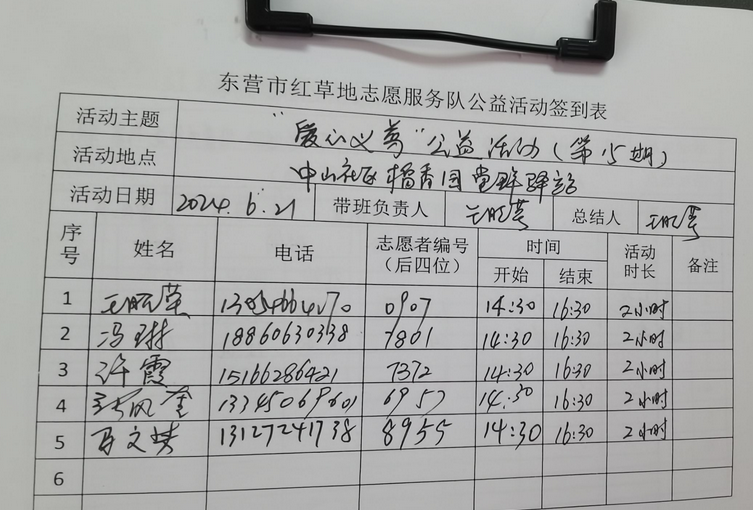 东营市红草地志愿服务队公益活动签到表
活动主题 "爱心义剪"公益活动(第15期)
活动地点 中山社区橘香园党群驿站
活动日期 2024.6.21 带班负责人 总结人
序号 姓名 电话 志愿者编号(后四位) 时间 开始 结束 活动时长 备注
1 0907 14:30 16:30 2小时
2 冯琳 18860630338 7801 14:30 16:30 2小时
3 许霞 15166286421 7372 14:30 16:30 2小时
4 13345069601 6957 14:30 16:30 2小时
5 13127241738 8955 14:30 16:30 2小时
6